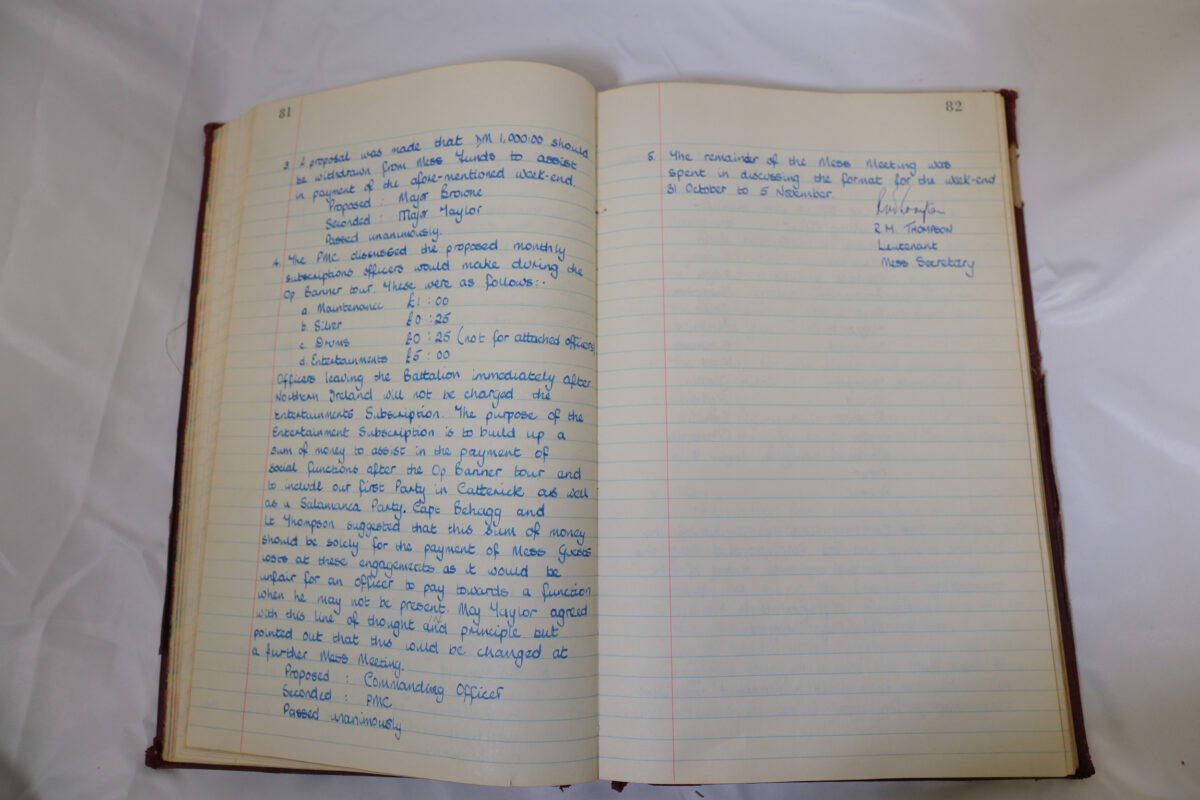 81
3. A proposal was made that DM 1,000:00 should
be withdrawn from Mess Funds to assist
in payment of the afore-mentioned week-end.
Proposed : Major Browne
Seconded : Major Taylor
Passed unanimously.
4. The PMC discussed the proposed monthly
subscriptions officers would make during the
Op Banner tour. These were as follows:-
a. Maintenance £1:00
b. Silver £0:25
c. Drums £0:25 (not for attached officers)
d. Entertainments £5:00
Officers leaving the Battalion immediately after
Northern Ireland will not be charged the
Entertainments Subscription. The purpose of the
Entertainment Subscription is to build up a
sum of money to assist in the payment of
social functions after the Op Banner tour and
to include our first Party in Catterick as well
as a Salamanca Party. Capt Behagg and
Lt Thompson suggested that this sum of money
should be solely for the payment of Mess Guests
costs at these engagements as it would be
unfair for an officer to pay towards a function
when he may not be present. Maj Taylor agreed
with this line of thought and principle but
pointed out that this could be changed at
a further Mess Meeting.
Proposed : Commanding Officer
Seconded : PMC
Passed unanimously
82
5. The remainder of the Mess Meeting was
spent in discussing the format for the week-end
31 October to 5 November.
R.M. THOMPSON
Lieutenant
Mess Secretary